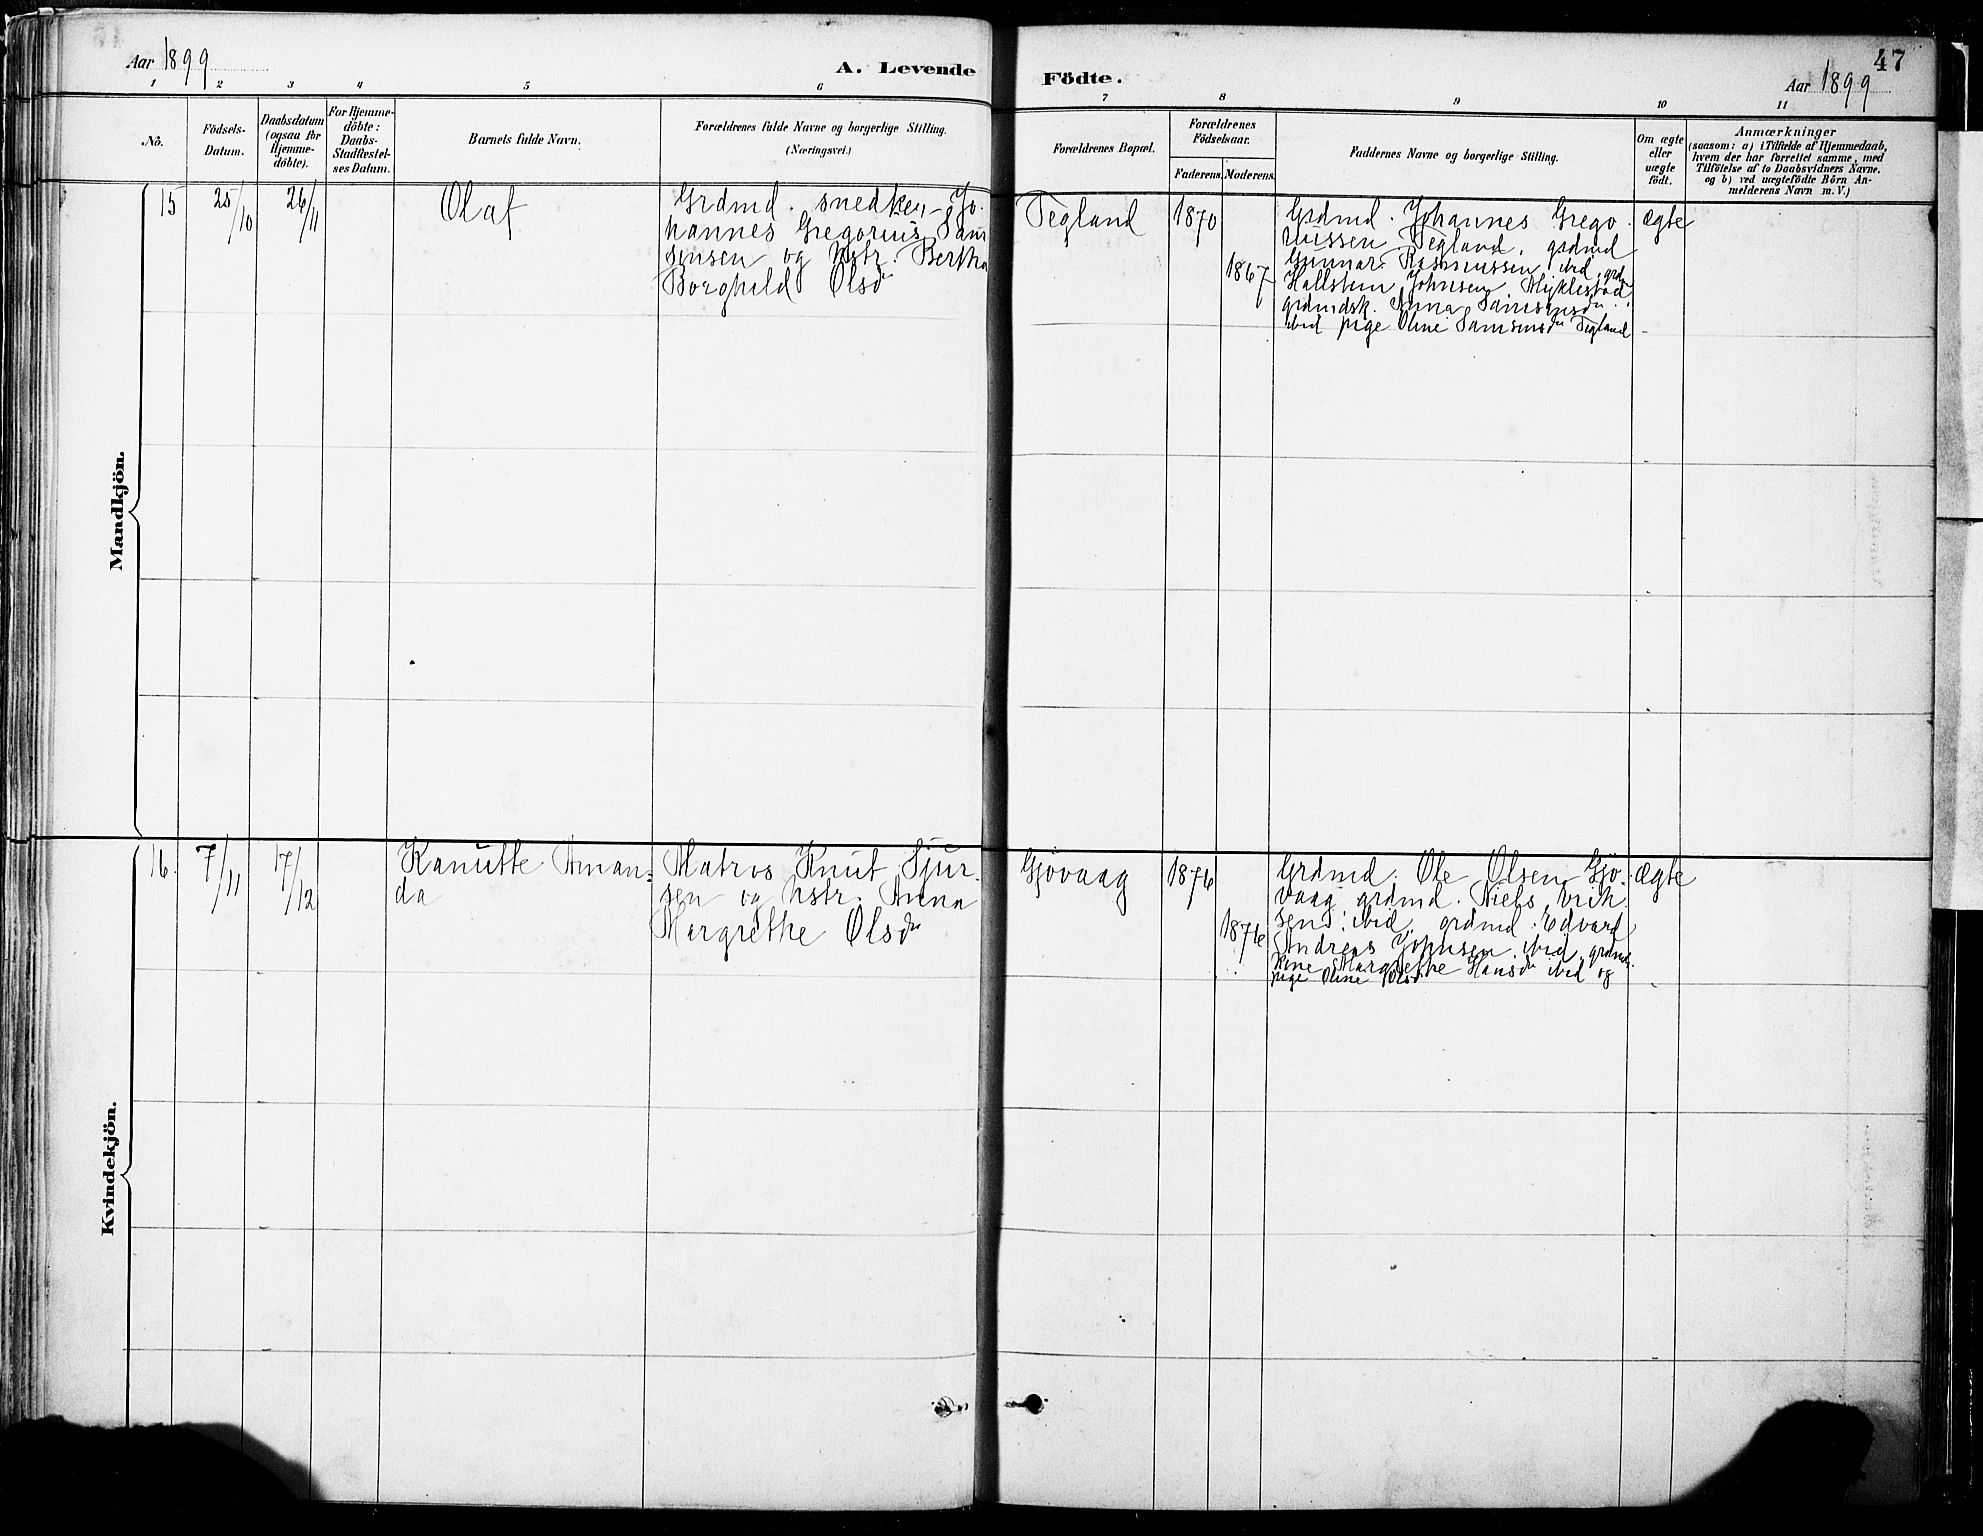 Aar 1899
A. Levende
Födte.
47
Aar 1899
1 2 3 4 5 6 7 8 9 10 11
No.
Födsels-
Datum.
Daabsdatum
(ogsaa for
Hjemme-
döbte).
For Hjemme-
döbte:
Daabs-
Stadfæstel-
ses Datum.
Barnets fulde Navn.
Forældrenes fulde Navne og borgerlige Stilling.
(Næringsvei.)
Forældrenes Bopæl.
Forældrenes
Födselsaar.
Faderens.
Moderens.
Faddernes Navne og borgerlige Stilling.
Om ægte
eller
uægte
födt.
Anmærkninger
(saasom: a) i Tilfælde af Hjemmedaab,
hvem der har forrettet samme, med
Tilföielse af to Daabsvidners Navne,
og b) ved uægtefödte Börn An-
melderens Navn m. V.)
Mandkjön.
15
25/10
26/11
Olaf
Grdmd. snedker Jo-
hannes Gregorius Sam
sensen og Hstr. Bertha
Borghild Olsdr
Tegland
1870
1867
Grdmd. Johannes Grego-
riussen Tegland, grdmd
Gunnar Rasmussen ibid, grdm
Hallstein Johnsen Myklestad
grdmdsk. Anna Samsonsdr
ibid pige Oline Samsonsdr Tegland
ægte
Kvindekjön.
16.
7/11
17/12
Kanutte Aman-
da
Matros Knut Sjur-
sen og Hstr. Anna
Margrethe Olsdr
Gjövaag
1876
1876
Grdmd. Ole Olsen Gjö-
vaag grdmd. Niels Erik
sen ibid, grdmd. Edvard
Andreas Johnsen ibid, grdmds.
kone Margrethe Hansdr ibid og
pige Oline Olsdr
ægte